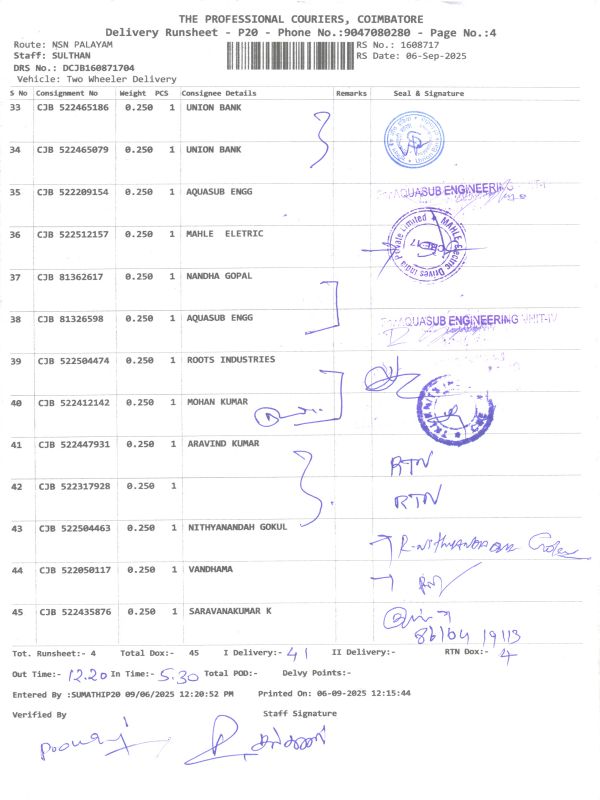 THE PROFESSIONAL COURIERS, COIMBATORE
Delivery Runsheet - P20 - Phone No.:9047080280 - Page No.:4
Route: NSN PALAYAM RS No.: 1608717
Staff: SULTHAN RS Date: 06-Sep-2025
DRS No.: DCJB160871704
Vehicle: Two Wheeler Delivery
S No Consignment No Weight PCS Consignee Details Remarks Seal & Signature
33 CJB 522465186 0.250 1 UNION BANK
34 CJB 522465079 0.250 1 UNION BANK
35 CJB 522209154 0.250 1 AQUASUB ENGG AQUASUB ENGINEERING
36 CJB 522512157 0.250 1 MAHLE ELETRIC MAHLE Electric Drives India Private Limited
37 CJB 81362617 0.250 1 NANDHA GOPAL
38 CJB 81326598 0.250 1 AQUASUB ENGG AQUASUB ENGINEERING UNIT-IV
39 CJB 522504474 0.250 1 ROOTS INDUSTRIES
40 CJB 522412142 0.250 1 MOHAN KUMAR
41 CJB 522447931 0.250 1 ARAVIND KUMAR RTN
42 CJB 522317928 0.250 1 RTN
43 CJB 522504463 0.250 1 NITHYANANDAH GOKUL
44 CJB 522050117 0.250 1 VANDHAMA
45 CJB 522435876 0.250 1 SARAVANAKUMAR K
Tot. Runsheet:- 4 Total Dox:- 45 I Delivery:- 41 II Delivery:- RTN Dox:- 4
Out Time:- 12.20 In Time:- 5.30 Total POD:- Delvy Points:-
Entered By :SUMATHIP20 09/06/2025 12:20:52 PM Printed On: 06-09-2025 12:15:44
Verified By Staff Signature